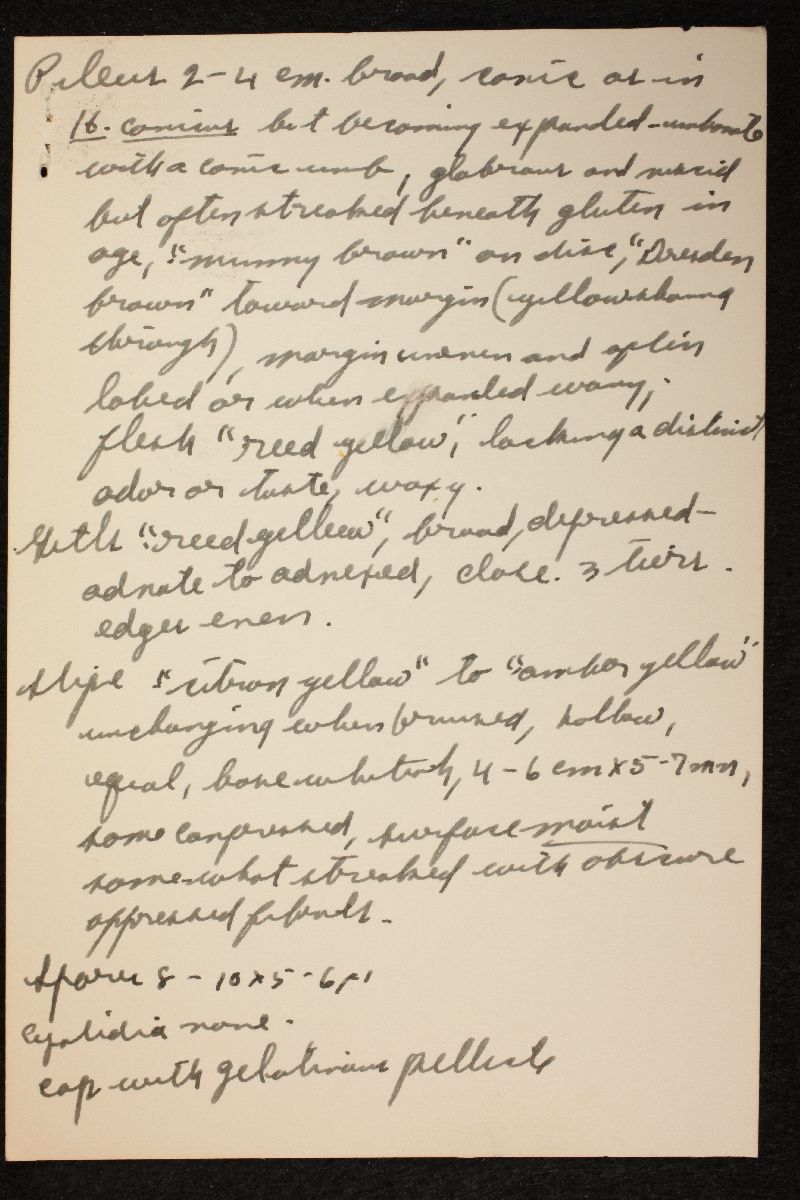 Pileus 2-4 cm. broad, conic as in
H. conicus but becoming expanded-umbonate
with a conic umb, glabrous and viscid
but often streaked beneath gluten in
age, "mummy brown" on disc, "Dresden
brown" toward margin (yellow showing
through), margin uneven and often
lobed or when expanded wavy;
flesh "reed yellow", lacking a distinct
odor or taste, waxy.
Gills "reed yellow", broad, depressed-
adnate to adnexed, close. 3 tiers.
edges even.
Stipe "citron yellow" to "amber yellow"
unchanging when bruised, hollow,
equal, base whitish, 4-6 cm x 5-7 mm,
some compressed, surface moist
somewhat streaked with obscure
appressed fibrils.
Spores 8-10 x 5-6 µ
Cystidia none.
cap with gelatinous pellicle